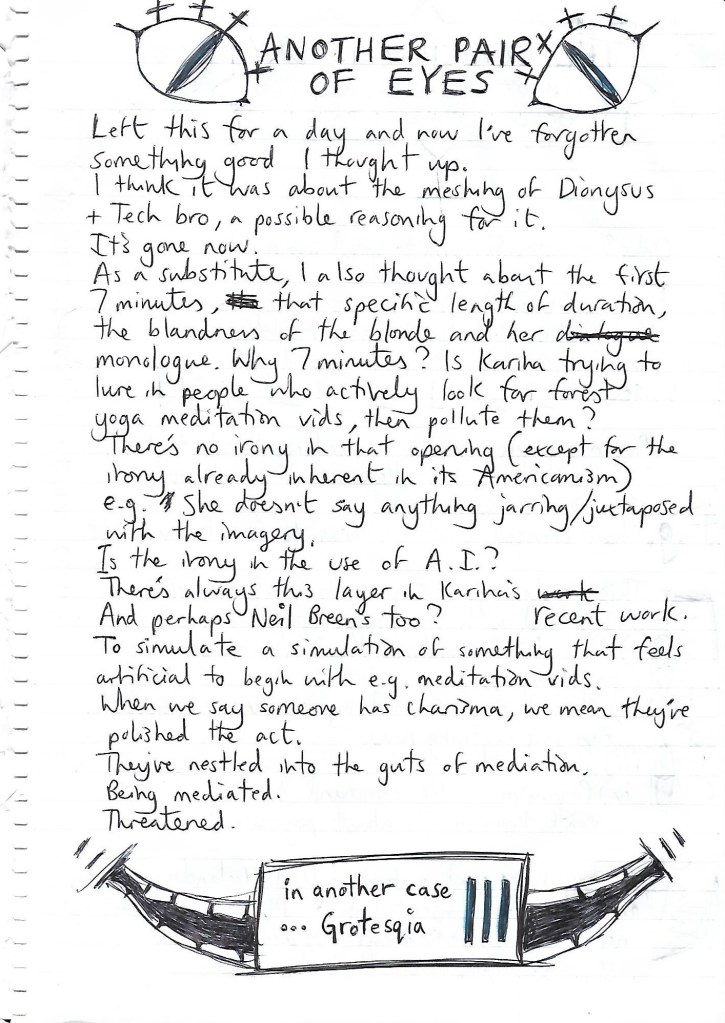 ANOTHER PAIR
OF EYES
Left this for a day and now I've forgotten
something good I thought up.
I think it was about the meshing of Dionysus
+ Tech bro, a possible reasoning for it.
It's gone now.
As a substitute, I also thought about the first
7 minutes, that specific length of duration,
the blandness of the blonde and her dialogue
monologue. Why 7 minutes? Is Kariha trying to
lure in people who actively look for forest
yoga meditation vids, then pollute them?
There's no irony in that opening (except for the
irony already inherent in its Americanism)
e.g. She doesn't say anything jarring/juxtaposed
with the imagery.
Is the irony in the use of A.I.?
There's always this layer in Kariha's work
And perhaps Neil Breen's too? recent work.
To simulate a simulation of something that feels
artificial to begin with e.g. meditation vids.
When we say someone has charisma, we mean they've
polished the act.
They've nestled into the guts of mediation.
Being mediated.
Threatened.
in another case
... Grotesqia